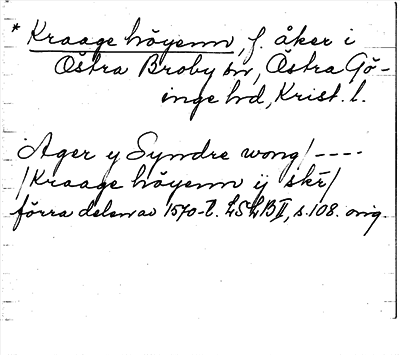 * Kraage höyenn, f. åker i
Östra Broby sn, Östra Gö-
inge hd, Krist. l.
Ager y Syndre wong/----
/Kraage höyenn ij skr̄/
förra delen av 1570-t. LSLB II, s. 108. orig.